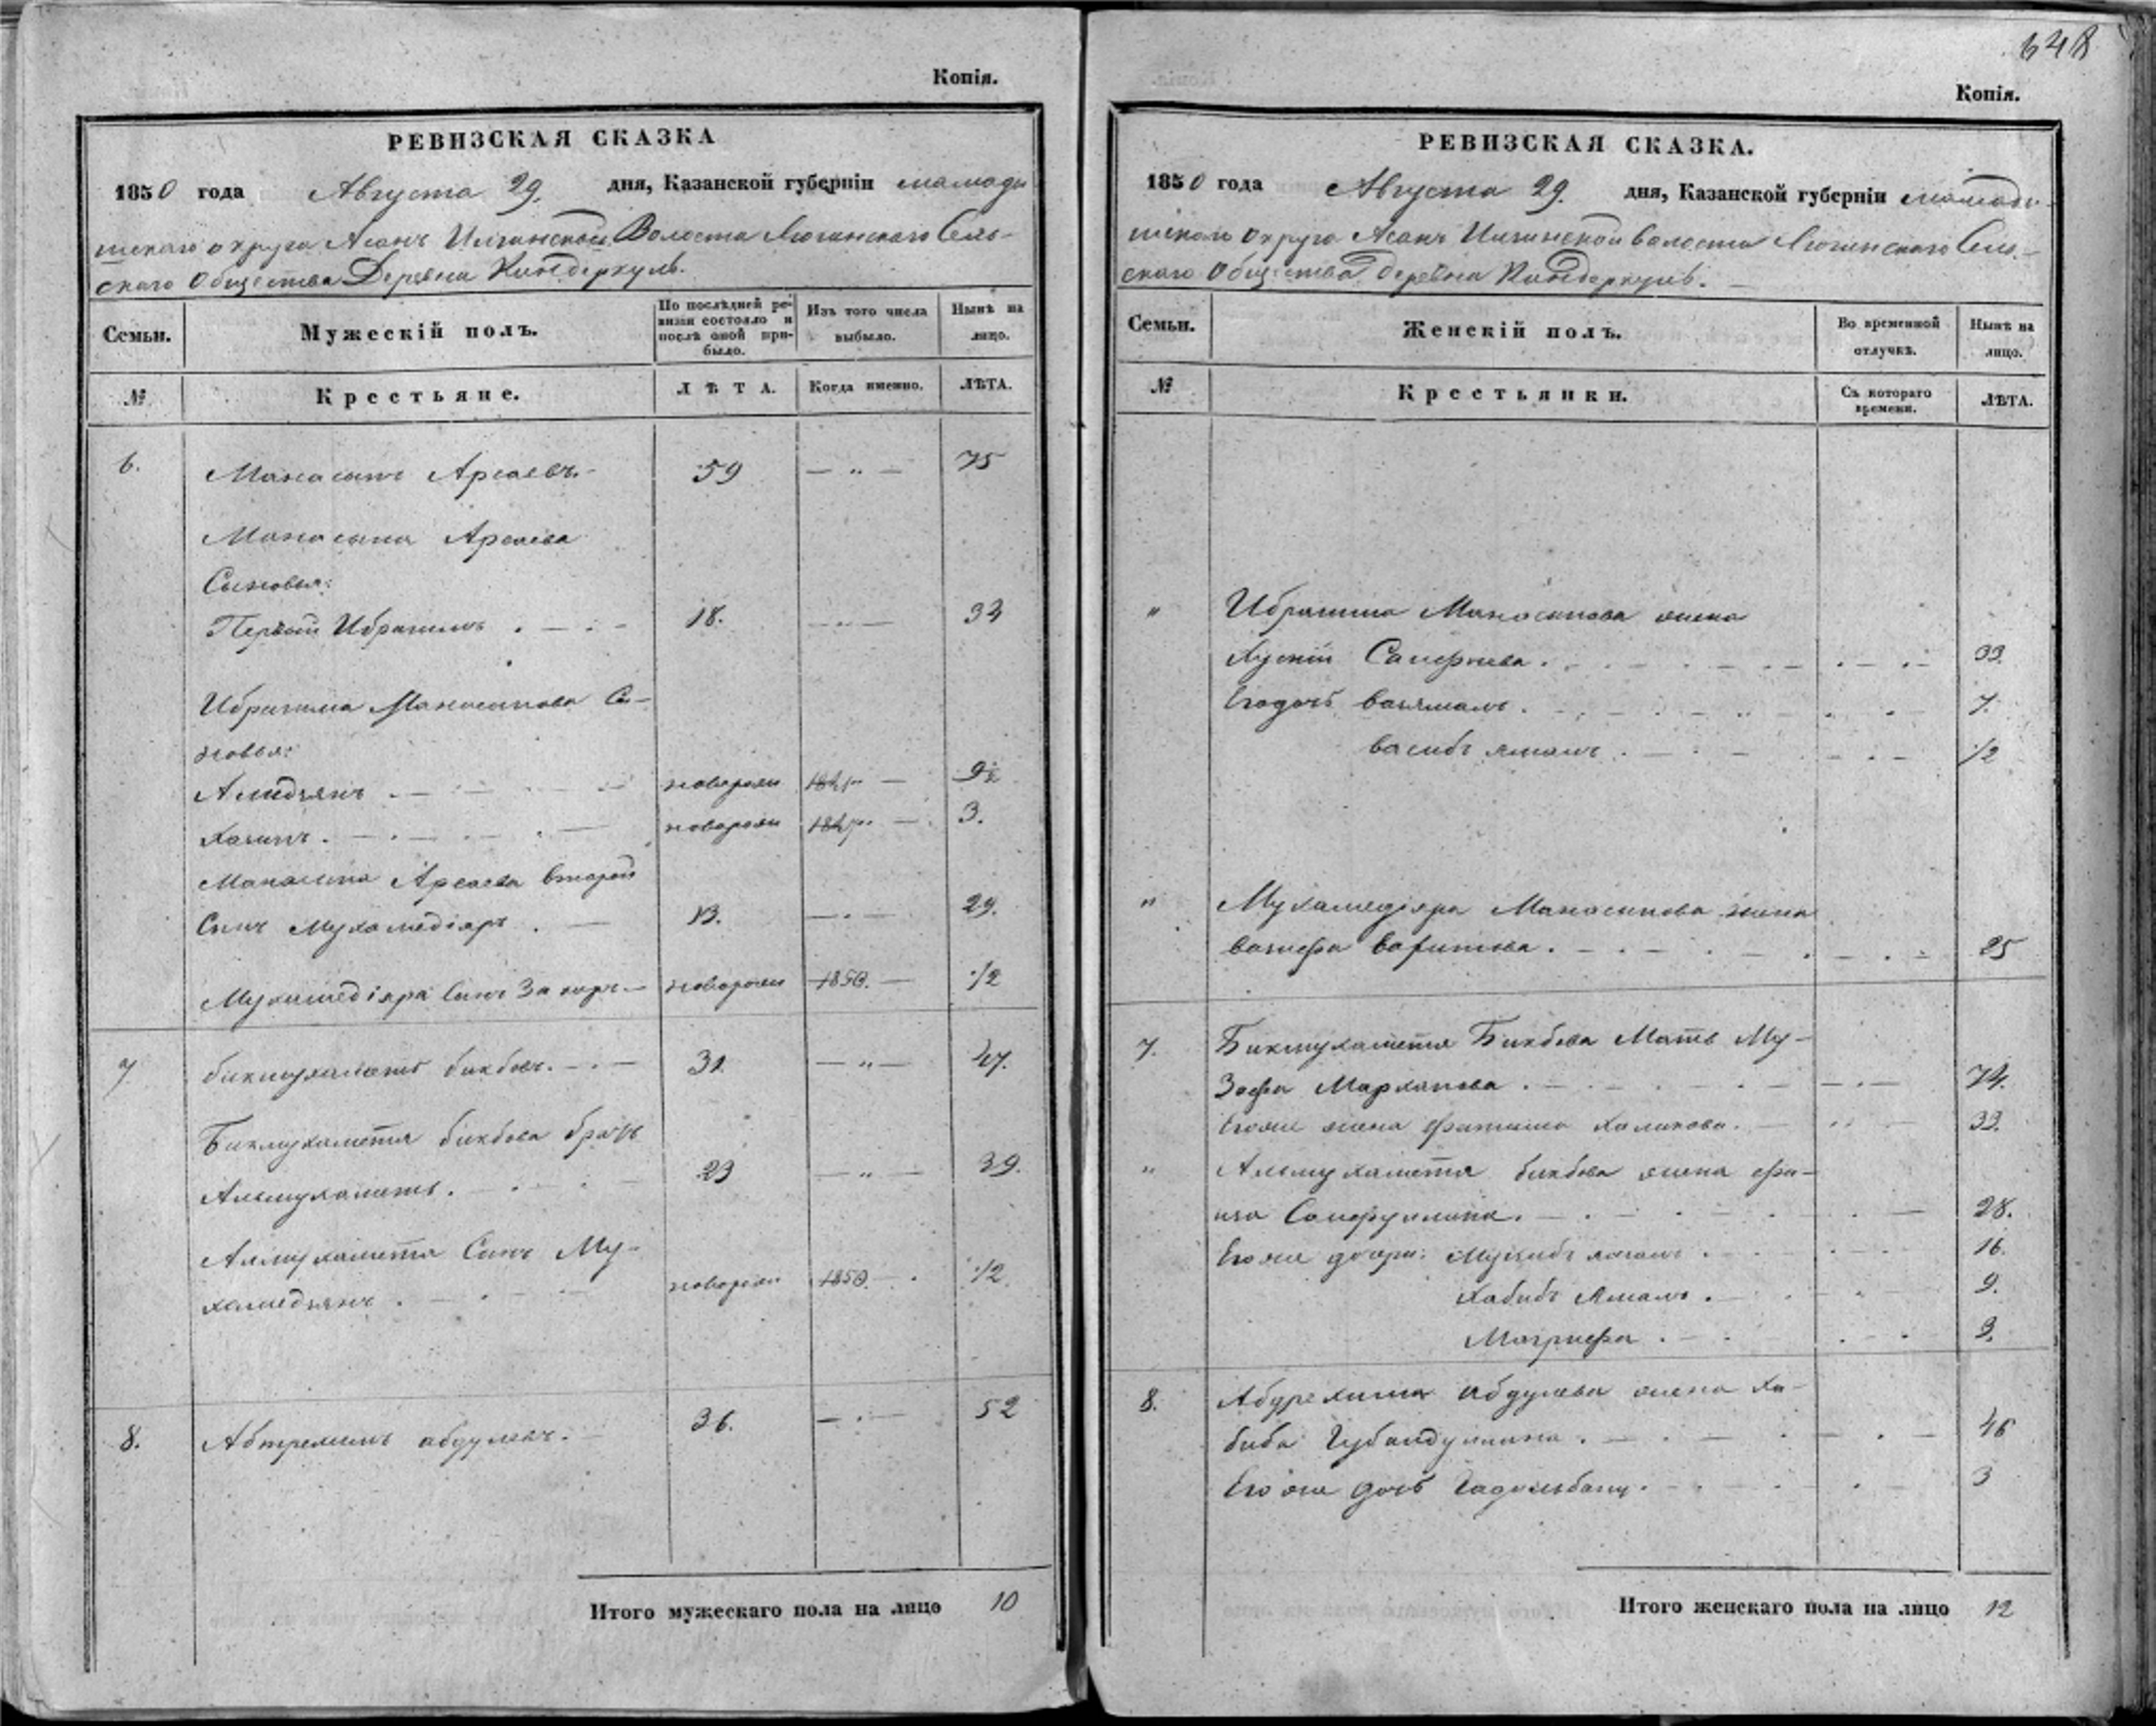 Копія.
РЕВИЗСКАЯ СКАЗКА
1850 года Августа 29. дня, Казанской губерніи мамады
шскаго округа Асанъ Илганской Волости Сель-
скаго Общества Деревни Киндеркуль.
Семьи.
Мужескій полъ.
По послѣдней ре-
визіи состояло и
послѣ оной при-
было.
Изъ того числа
выбыло.
Нынѣ на
лицо.
№
Крестьяне.
ЛѢТА.
Когда именно.
ЛѢТА.
6. Манасипъ Арсаевъ. 59 — „ — 75
Манасипа Арсаева
Сыновья:
Первый Ибрагимъ . — . — 18. — „ — 34
Ибрагима Манасипова Сы-
новья:
новорожн 9½
новорожн 1847 — 3.
Манасипа Арсаева второй
Сынъ Мухамедіяръ . — 13. — . — 29.
Мухамедіяра Сынъ — новорожн 1850. — ½
7 бикмухаметъ бикбовъ. — . — 31 — „ — 47.
Бикмухаметя бикбова братъ
Альмухаметъ. 23 — „ — 39.
Алмухаметя Сынъ Му-
хамедзянъ . — новорожн 1850. — . ½.
8. Абтрехимъ абдулевъ. 36. — . — 52
Итого мужескаго пола на лицо 10
648
Копія.
РЕВИЗСКАЯ СКАЗКА.
1850 года Августа 29. дня, Казанской губерніи мамады-
шскаго округа Асанъ Илганской волости Сель-
скаго Общества деревни Киндеркуль.
Семьи.
Женскій полъ.
Во временной
отлучкѣ.
Нынѣ на
лицо.
№
Крестьянки.
Съ котораго
времени.
ЛѢТА.
„ Ибрагима Манасипова жена
33.
Его дочь 7.
½
„ Мухамедіяра Манасипова жена
25
7. Бикмухаметя Бикбова Мать Му-
74.
Его же жена фатима Халикова. 33.
„ Альмухаметя бикбова жена
28.
Его же дочери: 16.
Хабибъ Ямалъ . 9.
Магруфа . 3.
8. Абдрехима Абдулева жена Ха-
биба Губайдуллина . 46
Его же дочь 3
Итого женскаго пола на лицо 12